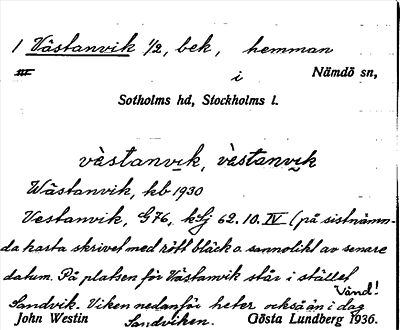 1 Västanvik 1/2, bek, hemman
III i Nämdö sn,
Sotholms hd, Stockholms l.
vàstanvik, vàstanvik
Wästanvik, kb 1930
Vestanvik, G76, kGj 62.10.IV (på sistnämn-
da karta skrivet med rött bläck o. sannolikt av senare
datum. På platsen för Västanvik står i stället
Sandvik. Viken nedanför heter också än i dag
Vänd!
Sandviken.
John Westin Gösta Lundberg 1936.